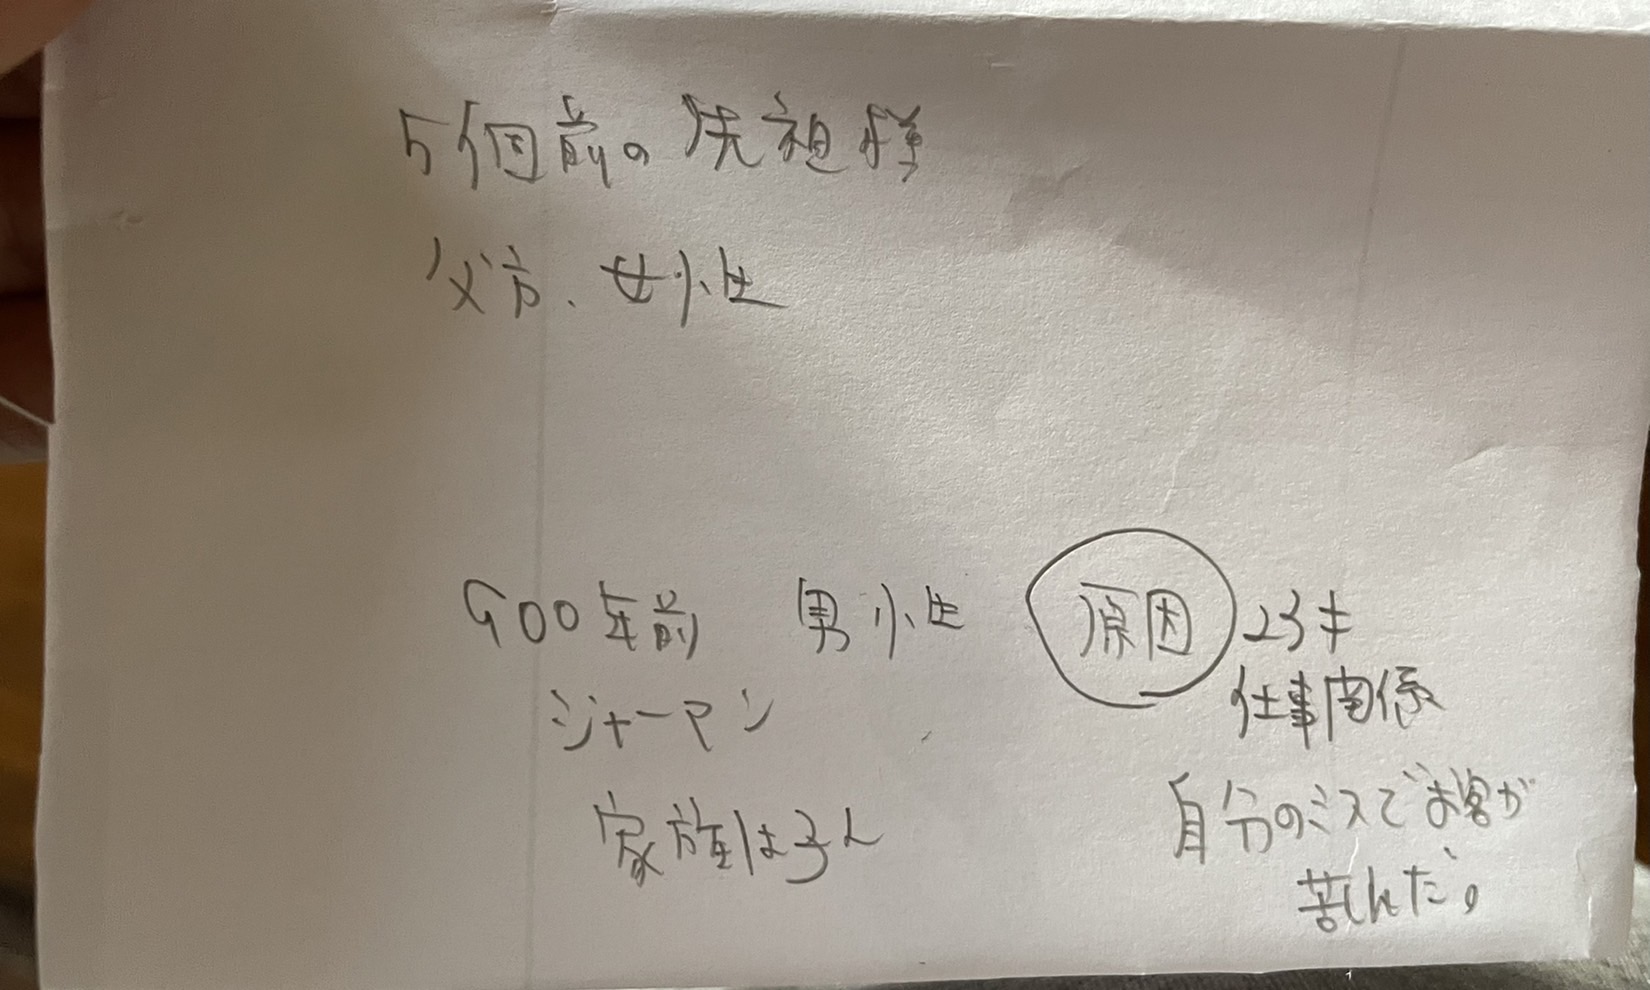 5個前の先祖様
父方、女性
900年前 男性 原因 23才
シャーマン 仕事関係
家族は3人 自分のミスでお客が
苦しんだ。